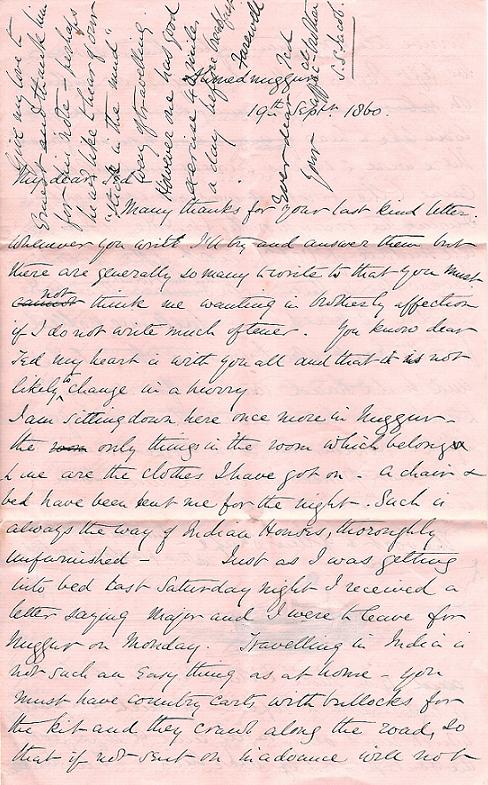 Ahmednuggur
19th Septr. 1860.
My dear Ted
Many thanks for your last kind letter.
Whenever you write I'll try and answer them but
there are generally so many to write to that you must
not think me wanting in brotherly affection
if I do not write much oftener. You know dear
Ted my heart is with you all and that it is not
likely to change in a hurry
I am sitting down here once more in Nuggur -
the room only things in the room which belong
to me are the clothes I have got on - a chair &
bed have been lent me for the night. Such is
always the way of Indian Houses, thoroughly
unfurnished - Just as I was getting
into bed last Saturday night I received a
letter saying Major and I were to leave for
Nuggur on Monday. Travelling in India is
not such an easy thing as at home - you
must have country carts with bullocks for
the kit and they crawl along the road, so
that if not sent on in advance will not
Give my love to
Ernest and thank him
for his note - perhaps
he will like their
"stick in the mud"
way of travelling
However one has good
exercise 4 miles
a day before breakfast
Farewell
Ever dear Ted
Your affec. brother
S.S. Jacob.